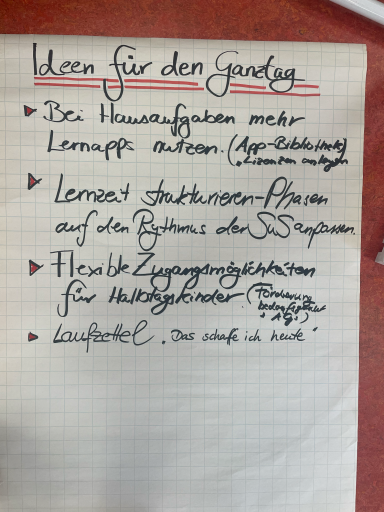 Ideen für den Ganztag
Bei Hausaufgaben mehr
Lernapps nutzen. (App-Bibliothek,
Lizenzen anlegen
Lernzeit strukturieren-Phasen
auf den Rythmus der SuS anpassen.
Flexible Zugangsmöglichkeiten
für Halbtagskinder. (Förderung
AG's)
Laufzettel. „Das schaffe ich heute"